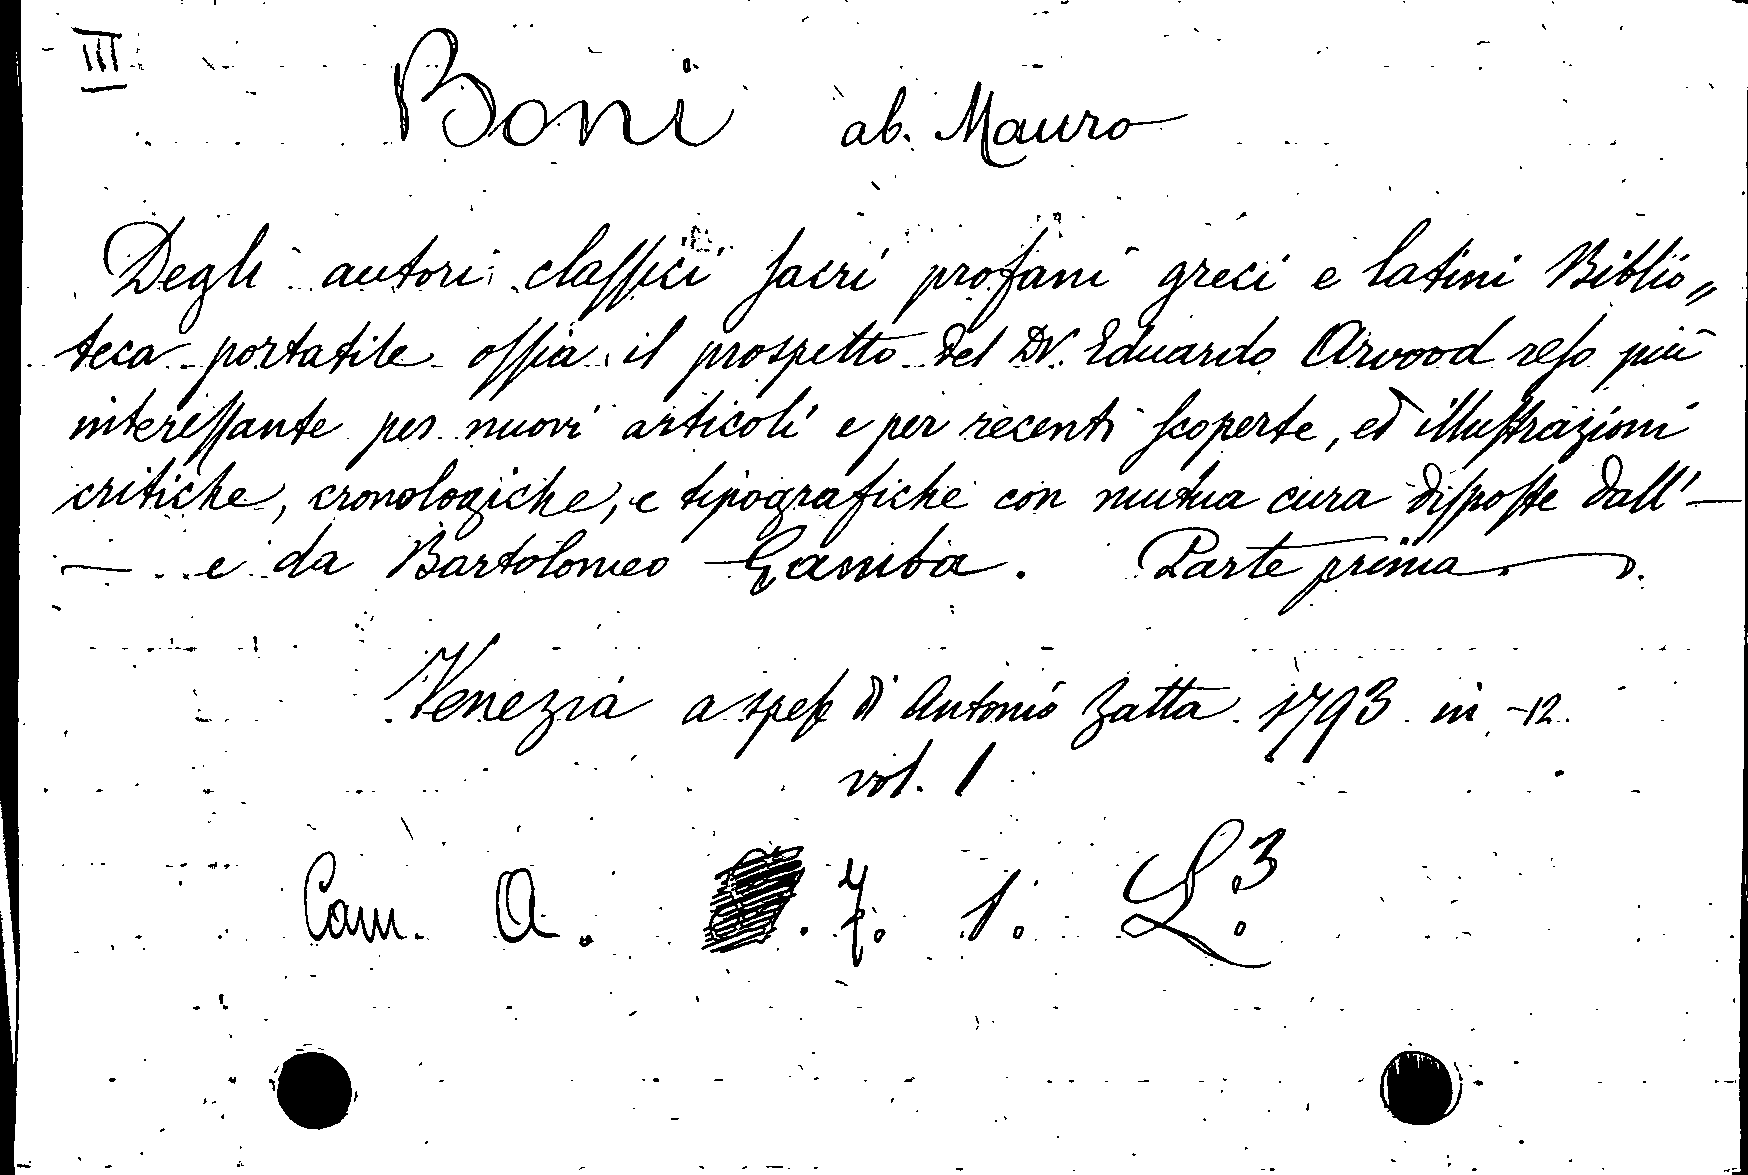 III
Boni ab. Mauro
Degli autori classici sacri profani greci e latini Biblio„
teca portatile ossia il prospetto del Dr. Eduardo Arvood reso più
interessante per nuovi articoli e per recenti scoperte, ed illustrazioni
critiche, cronologiche, e tipografiche con mutua cura disposte dall' —
— e da Bartolomeo Gamba. Parte prima.
Venezia a spese di Antonio Zatta 1793 in -12.
vol. 1
Cam. A. . 7. 1. L.3